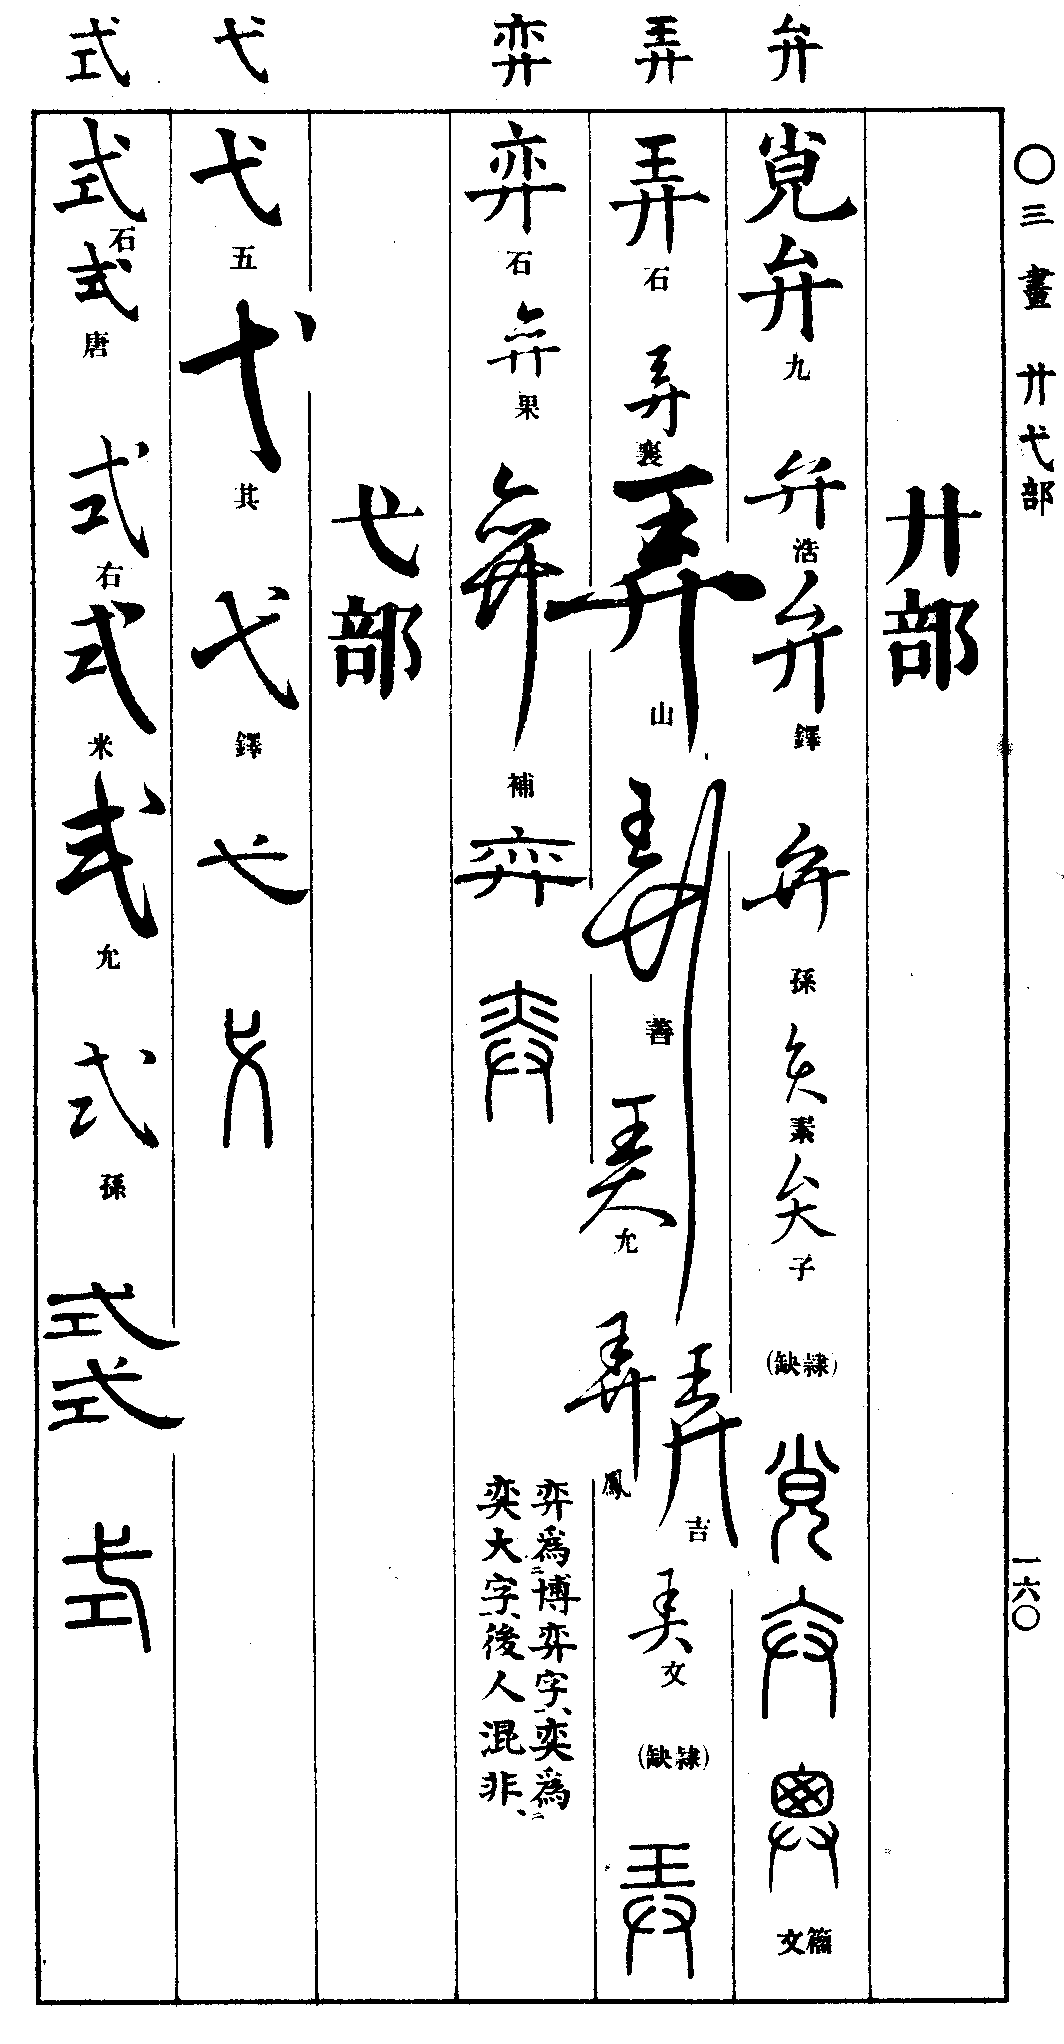 〇三畫 廾弋部
一六〇
廾部
弁
覍弁九
弁浩
弁鐸
弁孫
弁素
弁子
（隸缺）
籀文
弄
弄石
弄襄
弄山
弄善
弄允
弄鳳
弄吉
弄文
（隸缺）
弈
弈石
弈果
弈補
弈
弈爲博弈字、奕爲
奕大字、後人混非、
弋部
弋
弋五
弋其
弋鐸
弋
式
式石
式唐
式右
式米
式允
式孫
式
式